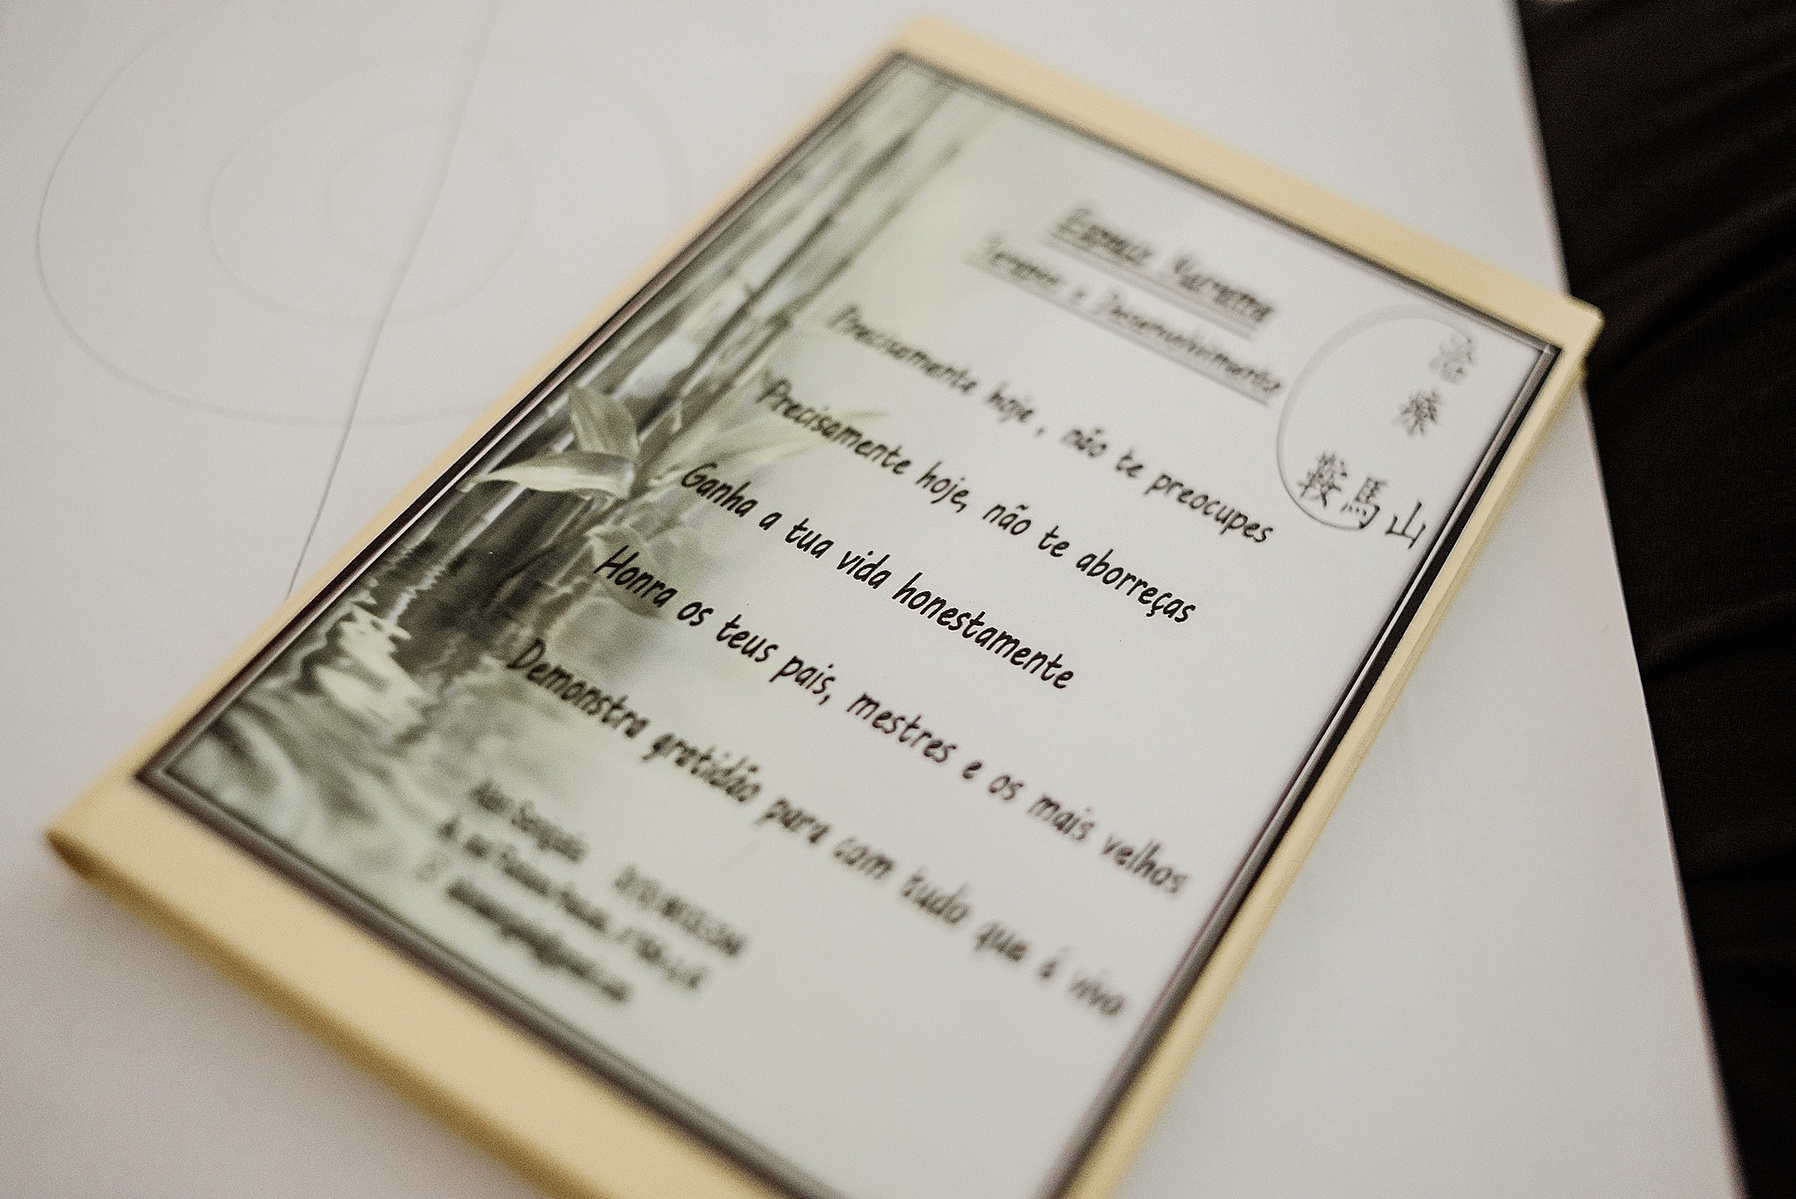 Espaço Kurama
Terapias e Desenvolvimento
治
療
鞍馬山
Precisamente hoje, não te preocupes
Precisamente hoje, não te aborreças
Ganha a tua vida honestamente
Honra os teus pais, mestres e os mais velhos
Demonstra gratidão para com tudo que é vivo